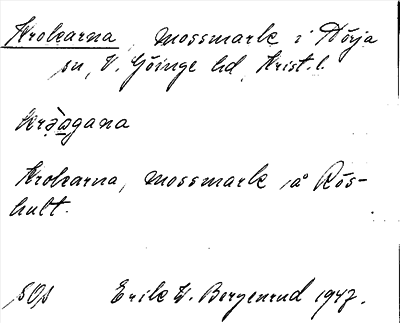 Krokarna, mossmark i Nörja
sn, V. Göinge hd, Krist. l.
Krokarna, mossmark å Rös-
hult.
SOS Erik W. Bergenrud 1947.